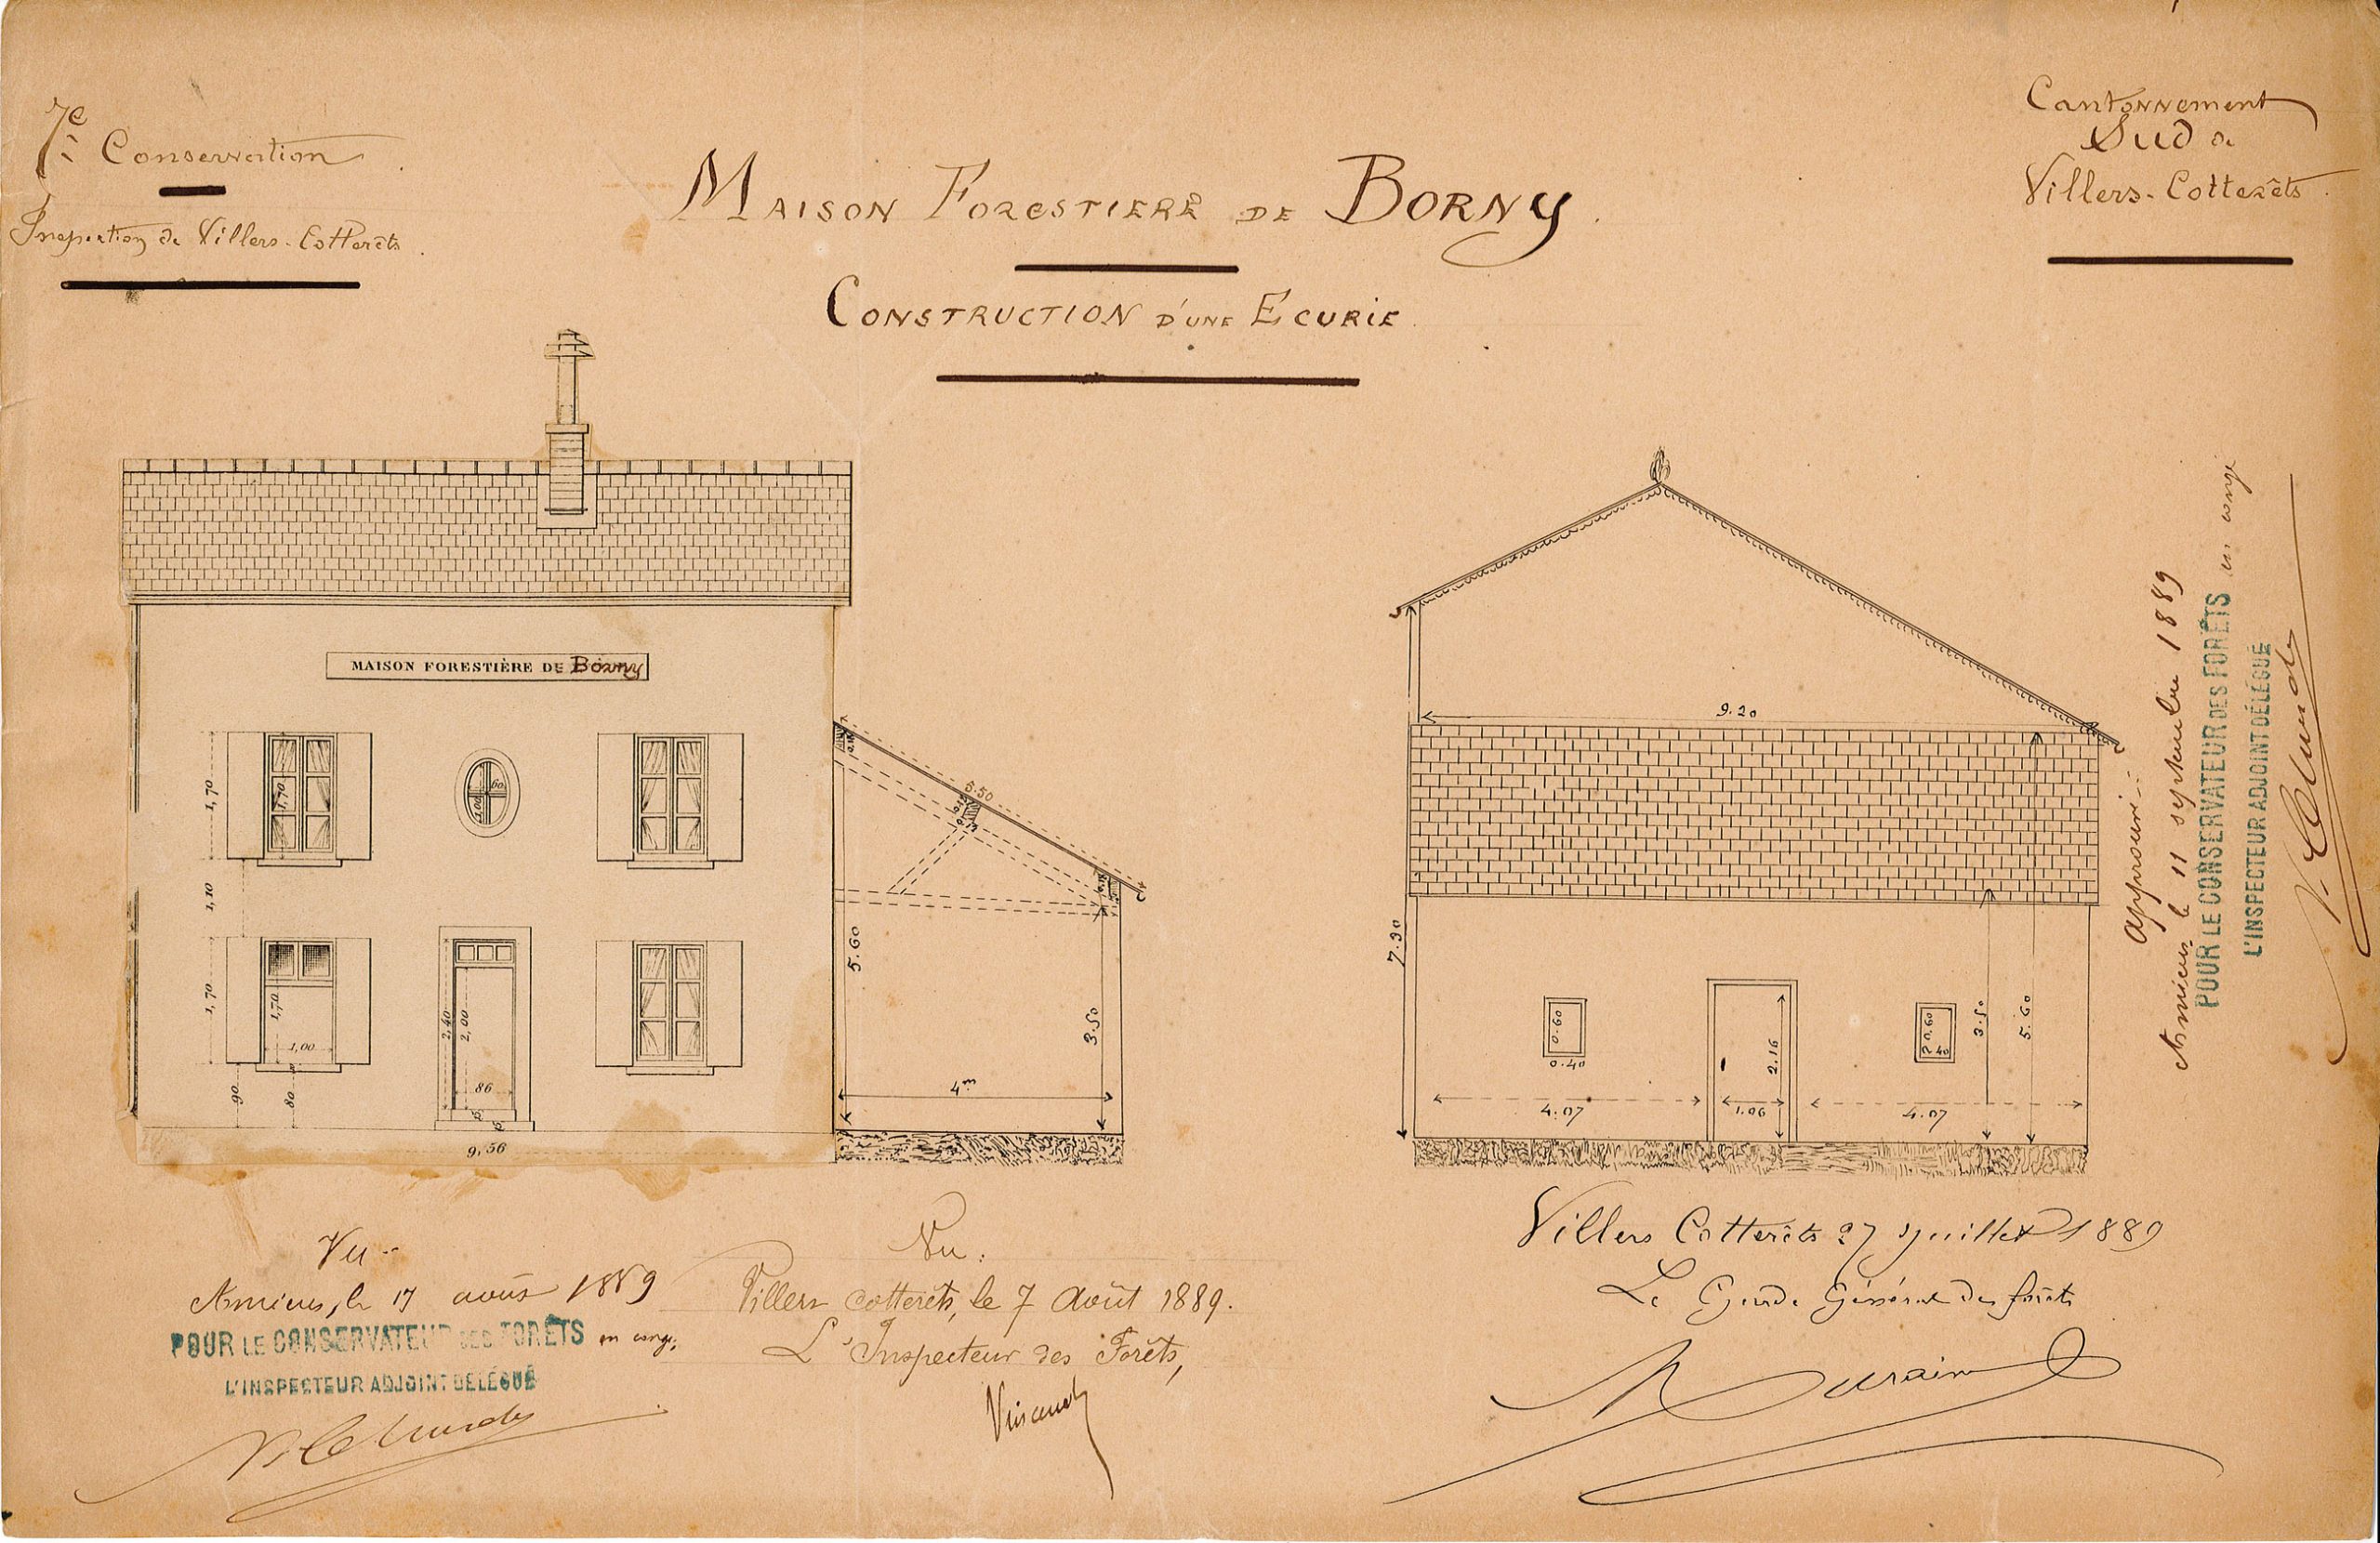 7e Conservation
Inspection de Villers-Cotterêts.
Cantonnement
Sud de
Villers-Cotterêts.
MAISON FORESTIERE DE BORNY.
CONSTRUCTION D'UNE ECURIE.
MAISON FORESTIÈRE DE Borny
1,70
1,70
1,00
60
1,10
1,70
1,70
1,00
90
80
2,40
2,00
86
9,56
6.50
5.60
3.50
4m
9.20
7.30
0.60
0.40
2.16
0.60
40
3.50
5.60
4.07
1.06
4.07
Approuvé:
Amiens, le 11 septembre 1889
POUR LE CONSERVATEUR DES FORÊTS en congé
L'INSPECTEUR ADJOINT DÉLÉGUÉ
Vu:
Amiens, le 17 août 1889
POUR LE CONSERVATEUR DES FORÊTS en congé,
L'INSPECTEUR ADJOINT DÉLÉGUÉ
Vu:
Villers Cotterêts, le 7 Août 1889.
L'Inspecteur des Forêts,
Villers Cotterêts 27 Juillet 1889
Le Garde Général des forêts